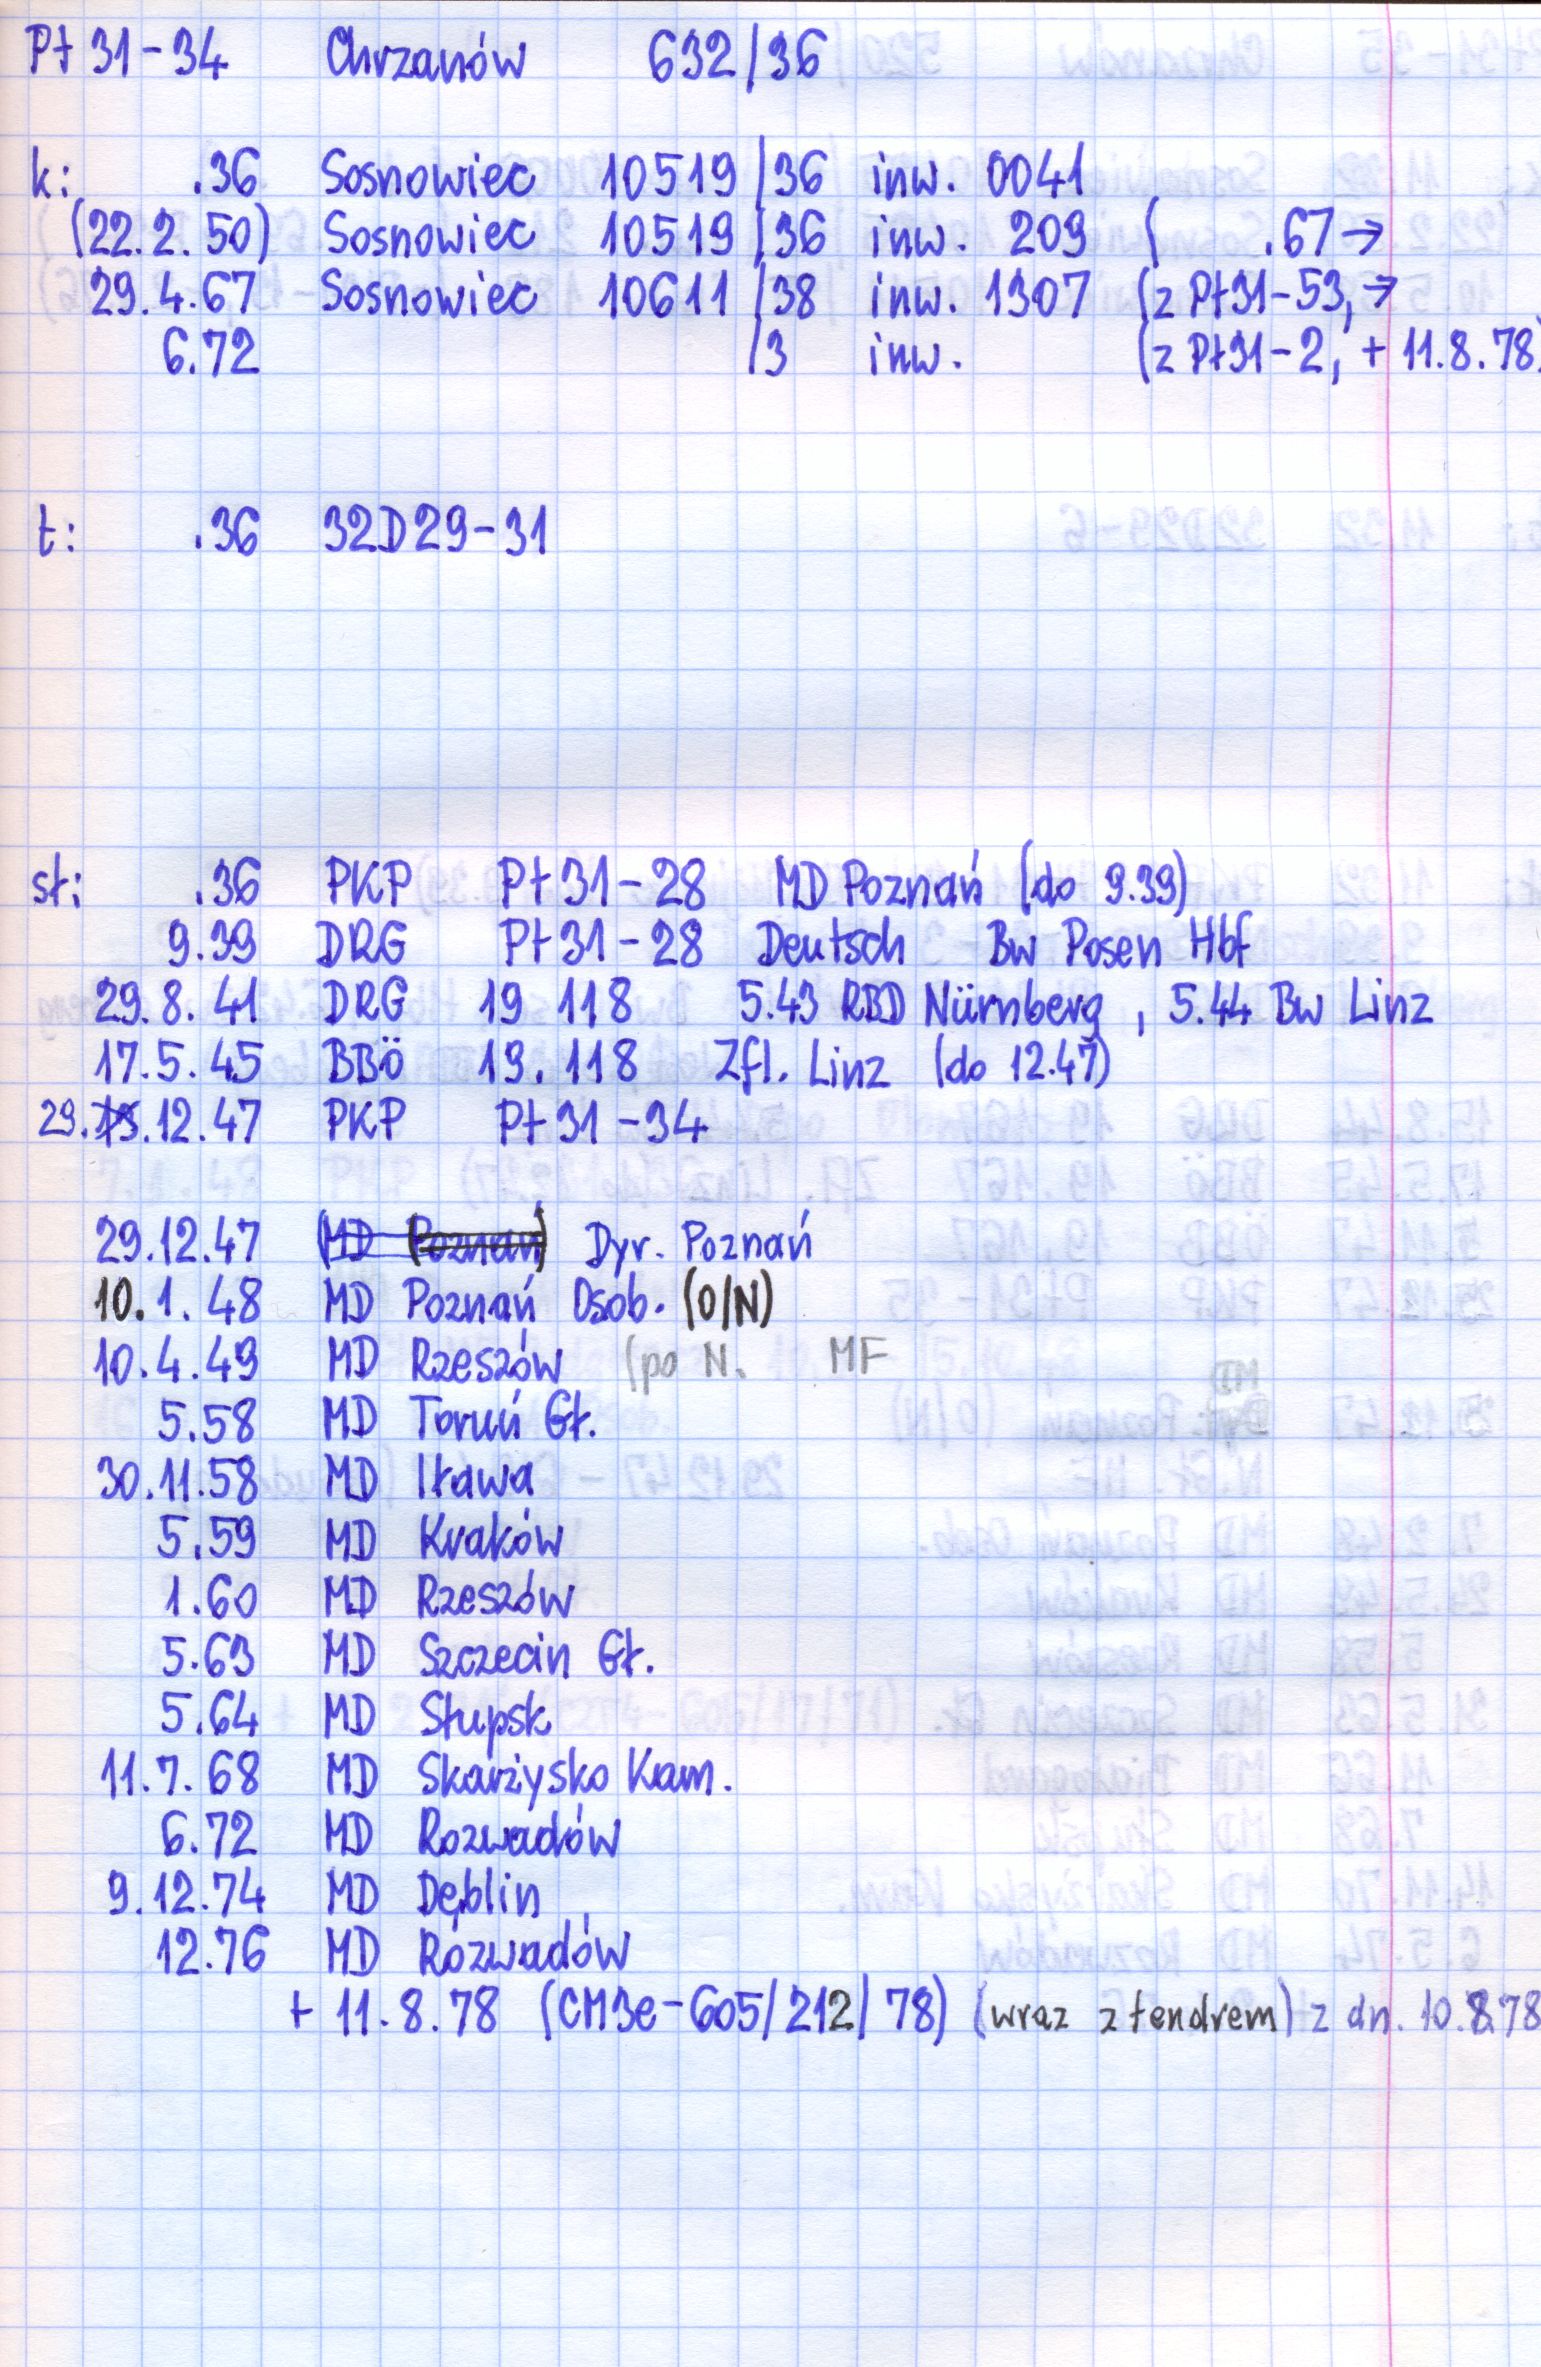 Pt 31-34 Chrzanów 632/36
k: .36 Sosnowiec 10519/36 inw. 0041
(22.2.50) Sosnowiec 10519/36 inw. 209 ( .67→
29.4.67 Sosnowiec 10611/38 inw. 1307 (z Pt31-53, →
6.72 /3 inw. (z Pt31-2, + 11.8.78)
t: .36 32D29-31
sł: .36 PKP Pt31-28 MD Poznań (do 9.39)
9.39 DRG Pt31-28 Deutsch Bw Posen Hbf
29.8.41 DRG 19 118 5.43 RBD Nürnberg, 5.44 Bw Linz
17.5.45 BBÖ 19.118 Zfl. Linz (do 12.47)
29.12.47 PKP Pt31-34
29.12.47 (MD (Poznań) Dyr. Poznań
10.1.48 MD Poznań Osob. (O/N)
10.4.49 MD Rzeszów (po N. MF
5.58 MD Toruń Gł.
30.11.58 MD Iława
5.59 MD Kraków
1.60 MD Rzeszów
5.63 MD Szczecin Gł.
5.64 MD Słupsk
11.7.68 MD Skarżysko Kam.
6.72 MD Rozwadów
9.12.74 MD Dęblin
12.76 MD Rozwadów
+ 11.8.78 (CM3e-605/212/78) (wraz z tendrem) z dn. 10.8.78